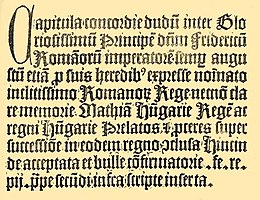 Capitula concordie dudū inter Glo
riosissimū Principē dnm̄ Fridericū
Romanorū imperatorē semp̲ augu
stū etiā ꝓ suis heredib⁹ expresse noīato
inclitissimo Romanoꝝ Rege necnō cla
re memorie. Mathiā Hūgarie Regē ac
regni Hūgarie Prelatos ⁊ ꝓceres super
successiōe in eodem regno
de acceptata et bulle cōfirmatorie .fe. re.
pij. pp̄e secūdi infrascripte inserta.